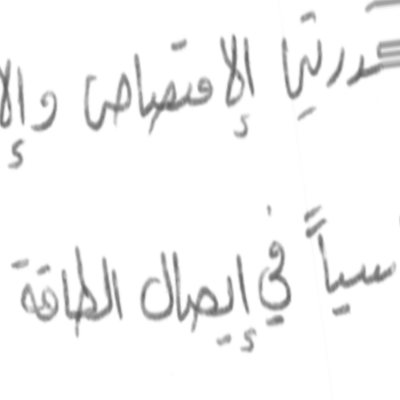 درتي الإمتصاص وإلا
سياً في إيصال الطاقة